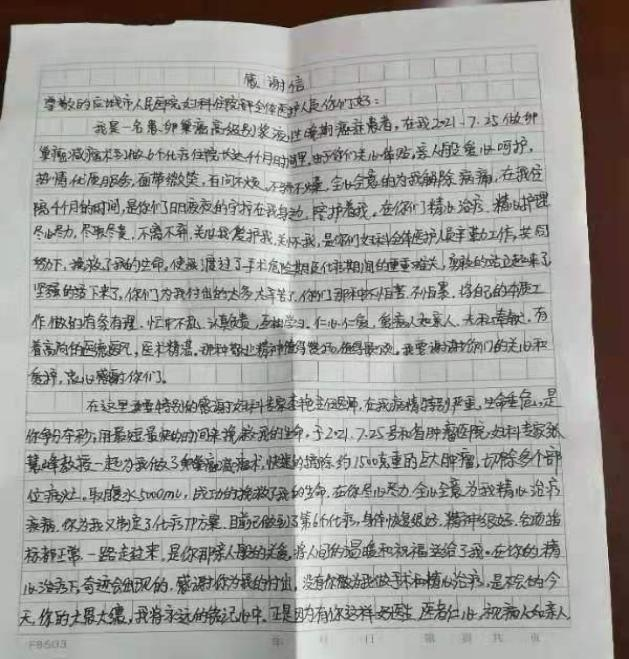 感谢信
尊敬的应城市人民医院妇科住院部全体医护人员你们好：
我是一名患卵巢癌高级别浆液性晚期癌症患者，在我2021.7.25做卵
巢癌减瘤术到做6个化疗住院长达4个月时间里，由于你们关心体贴，亲人般爱心呵护，
热情优质服务，面带微笑，有问不烦，不骄不燥，全心全意的为我解除病痛，在我住
院4个月的时间，是你们日日夜夜的守护在我身边，陪护着我，在你们精心治疗、精心护理
尽心尽力，尽职尽责，不离不弃，关心我爱护我关怀我，是你们妇科全体医护人员辛勤工作，共同
努力下，挽救了我的生命，使我渡过了手术危险期及化疗期间的重重难关，勇敢的站立起来了
坚强的活下来了，你们为我付出的太多太辛苦了，你们那种不怕苦、不怕累，将自己的本质工
作做的有条有理，忙中不乱、认真负责、互相学习、仁心仁爱，待病人如亲人，大和奉献，有
着高尚的医德医风，医术精湛，那种敬业精神值得赞扬，值得我，我要谢谢你们的关心和
爱护，忠心感谢你们。
在这里要特别的感谢妇科专家主任医师，在我病情特别严重，生命垂危，是
你争分夺秒，用最短最快的时间来挽救我的生命，于2021.7.25号和省肿瘤医院妇科专家张
教授一起为我做了卵巢癌减瘤术，快速的摘除约1500克重的巨大肿瘤，切除多个部
位病灶。取腹水5000mL，成功的挽救了我的生命，在你尽心尽力，全心全意为我精心治疗
疾病，你为我又制定了化疗TP方案，目前已做到了第6个化疗，身体恢复很好，精神很好，各项指
标都正常，一路走过来，是你那亲人般的关爱，将人间的温暖和祝福送给了我。在你的精
心治疗下，奇迹会出现的，感谢你为我的付出，没有你做为我做手术和精心治疗，是不会的今
天，你的大恩大德，我将永远的铭记心中，正是因为有你这样好医生，医者仁心，视病人如亲人
F8503
年 月 日 第 页 共 页